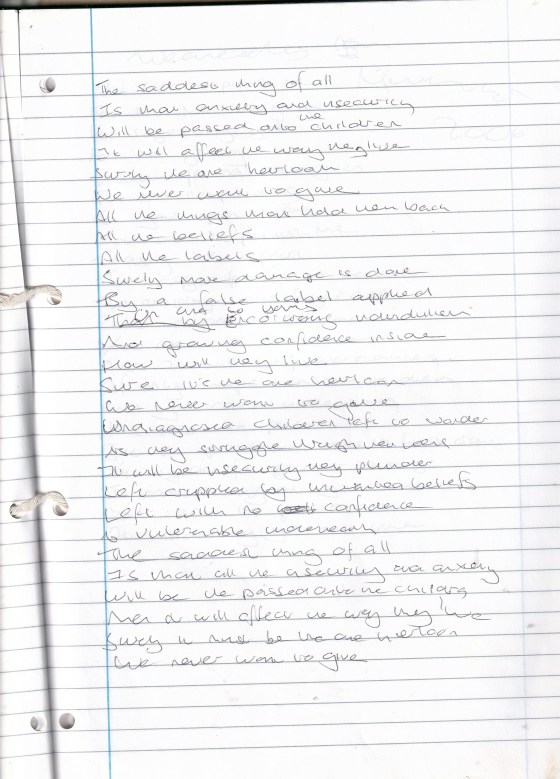 The saddest thing of all
Is that anxiety and insecurity
Will be passed onto the children
It will affect the way they live
Surely the one heirloom
We never want to gave
All the things that hold them back
All the beliefs
All the labels
Surely more damage is done
By a false label applied
Than by
No growing confidence inside
How will they live
Sure it's the one heirloom
We never want to gave
Undiagnosed children left to wonder
As they struggle through
It will be insecurity they plunder
Left crippled by beliefs
Left with no confidence
vulnerable underneath
The saddest thing of all
Is that all the insecurity and anxiety
Will be the passed onto the
it will affect the way they live
Surely it must be the one heirloom
We never want to give